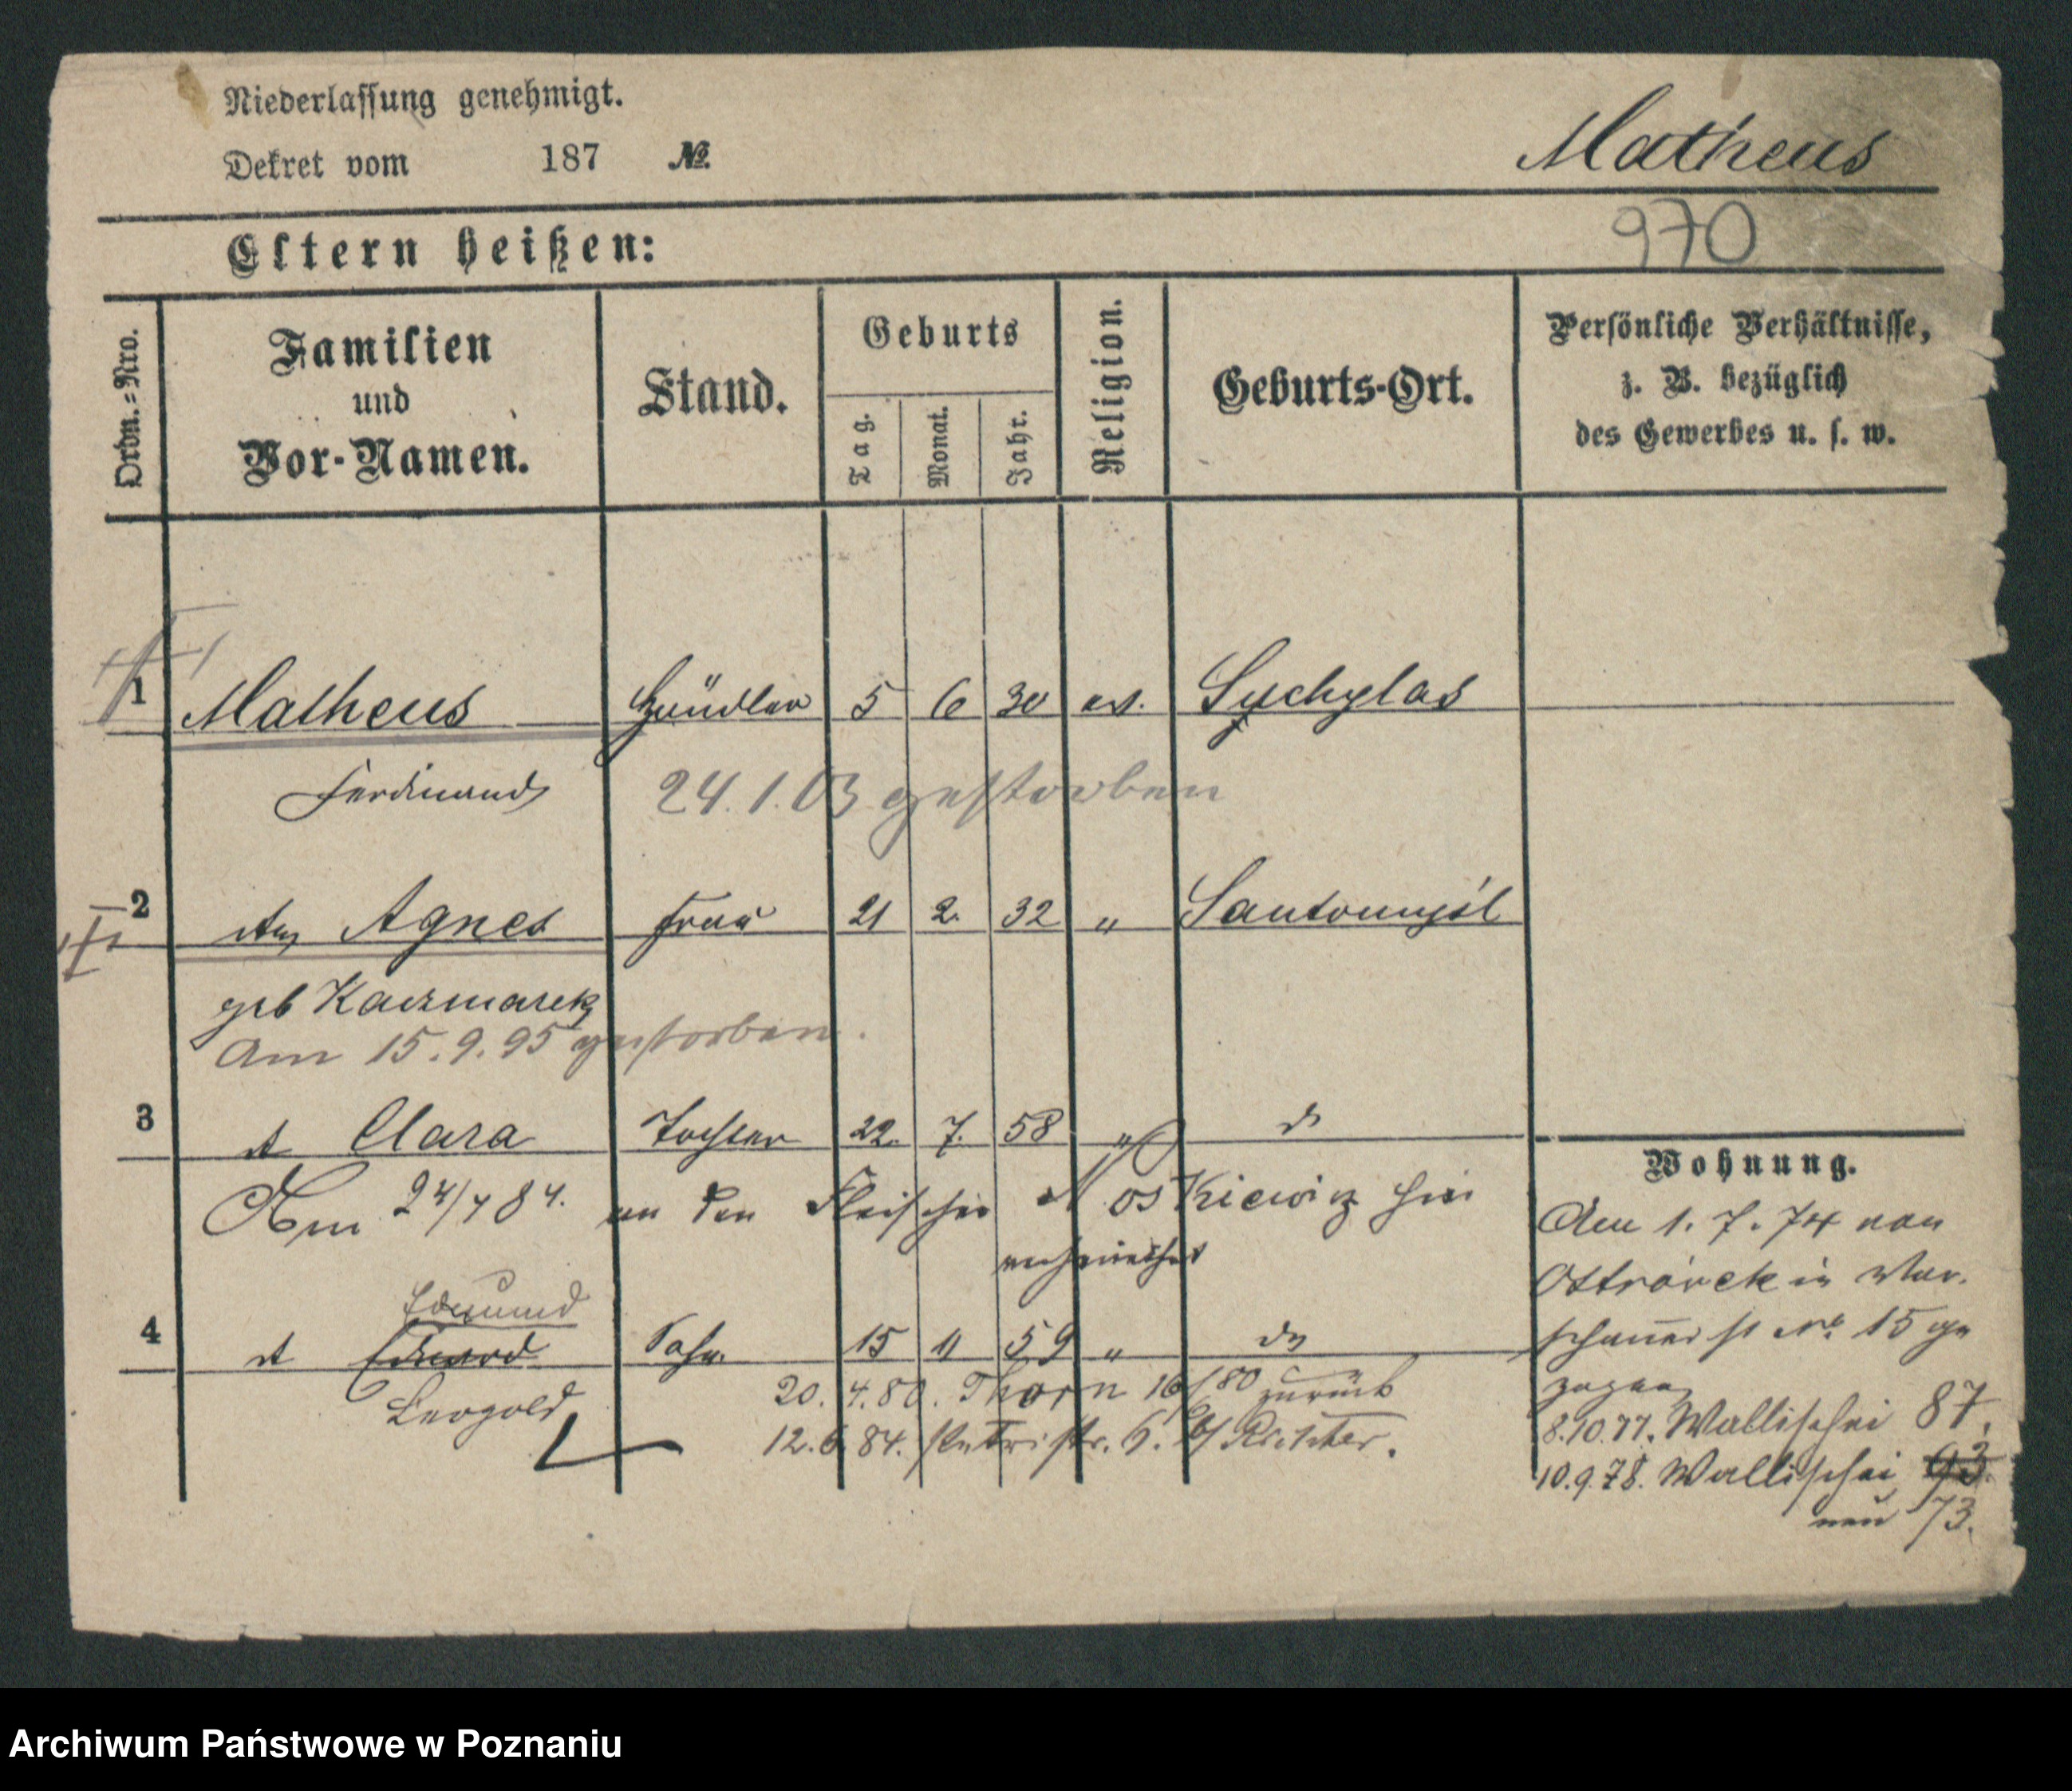 Niederlassung genehmigt.
Dekret vom 187 №.
Matheus
970
Eltern heißen:
Ordn.=Nro.
Familien und Vor-Namen.
Stand.
Geburts
Tag.
Monat.
Jahr.
Religion.
Geburts-Ort.
Persönliche Verhältnisse, z. B. bezüglich des Gewerbes u. s. w.
1 Matheus Händler 5 6 30 ev. Suchylas
Ferdinand
24.1.03 gestorben
2 Agnes Frau 21 2. 32 " Santomysl
geb Kaczmarek
Am 15.9.95 gestorben.
3 Clara Tochter 22. 7. 58 "
Am 24/7 84. an den Fleischer hier
verheirathet
Edmund
4 Eduard Sohn 15 11 59 "
Leopold
20. 4.80. Thorn 16/ 80 zurück
12.6 84. Petristr. 6. b/ Richter.
Wohnung.
Am 1. 7. 74 von
in War-
schauer st No 15 ge
zogen
8.10.77. Wallischei 87.
10.9.78. Wallischei 93.
neu 73.
Archiwum Państwowe w Poznaniu